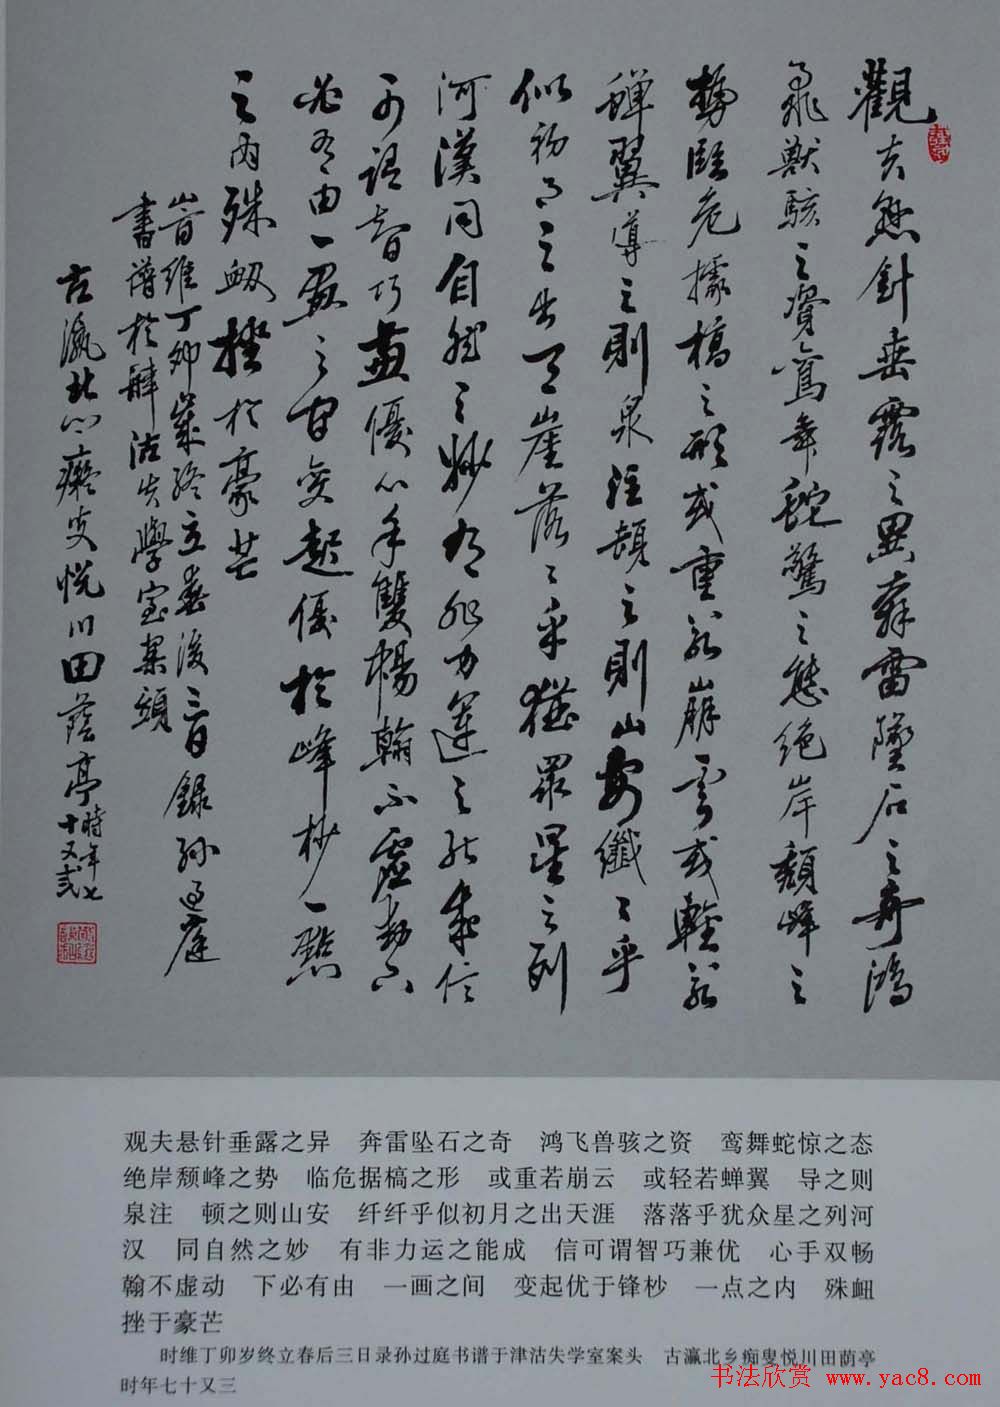 觀夫懸針垂露之異奔雷墜石之奇鴻
飛獸駭之資鸞舞蛇驚之態絕岸頹峰之
勢臨危據槁之形或重若崩雲或輕若
蟬翼導之則泉注頓之則山安纖〻乎
似初月之出天崖落〻乎猶眾星之列
河漢同自然之妙有非力運之能成信
可謂智巧兼優心手雙暢翰不虛動下
必有由一畫之間變起優於峰杪一點
之內殊衄挫於豪芒
時維丁卯歲終立春後三日錄孫過庭
書譜於津沽失學室案頭
古瀛北鄉癡叟悅川田蔭亭時年七
十又弎
观夫悬针垂露之异　奔雷坠石之奇　鸿飞兽骇之资　鸾舞蛇惊之态
绝岸颓峰之势　临危据槁之形　或重若崩云　或轻若蝉翼　导之则
泉注　顿之则山安　纤纤乎似初月之出天涯　落落乎犹众星之列河
汉　同自然之妙　有非力运之能成　信可谓智巧兼优　心手双畅
翰不虚动　下必有由　一画之间　变起优于锋杪　一点之内　殊衄
挫于豪芒
时维丁卯岁终立春后三日录孙过庭书谱于津沽失学室案头　古瀛北乡痴叟悦川田荫亭
时年七十又三
书法欣赏 www.yac8.com